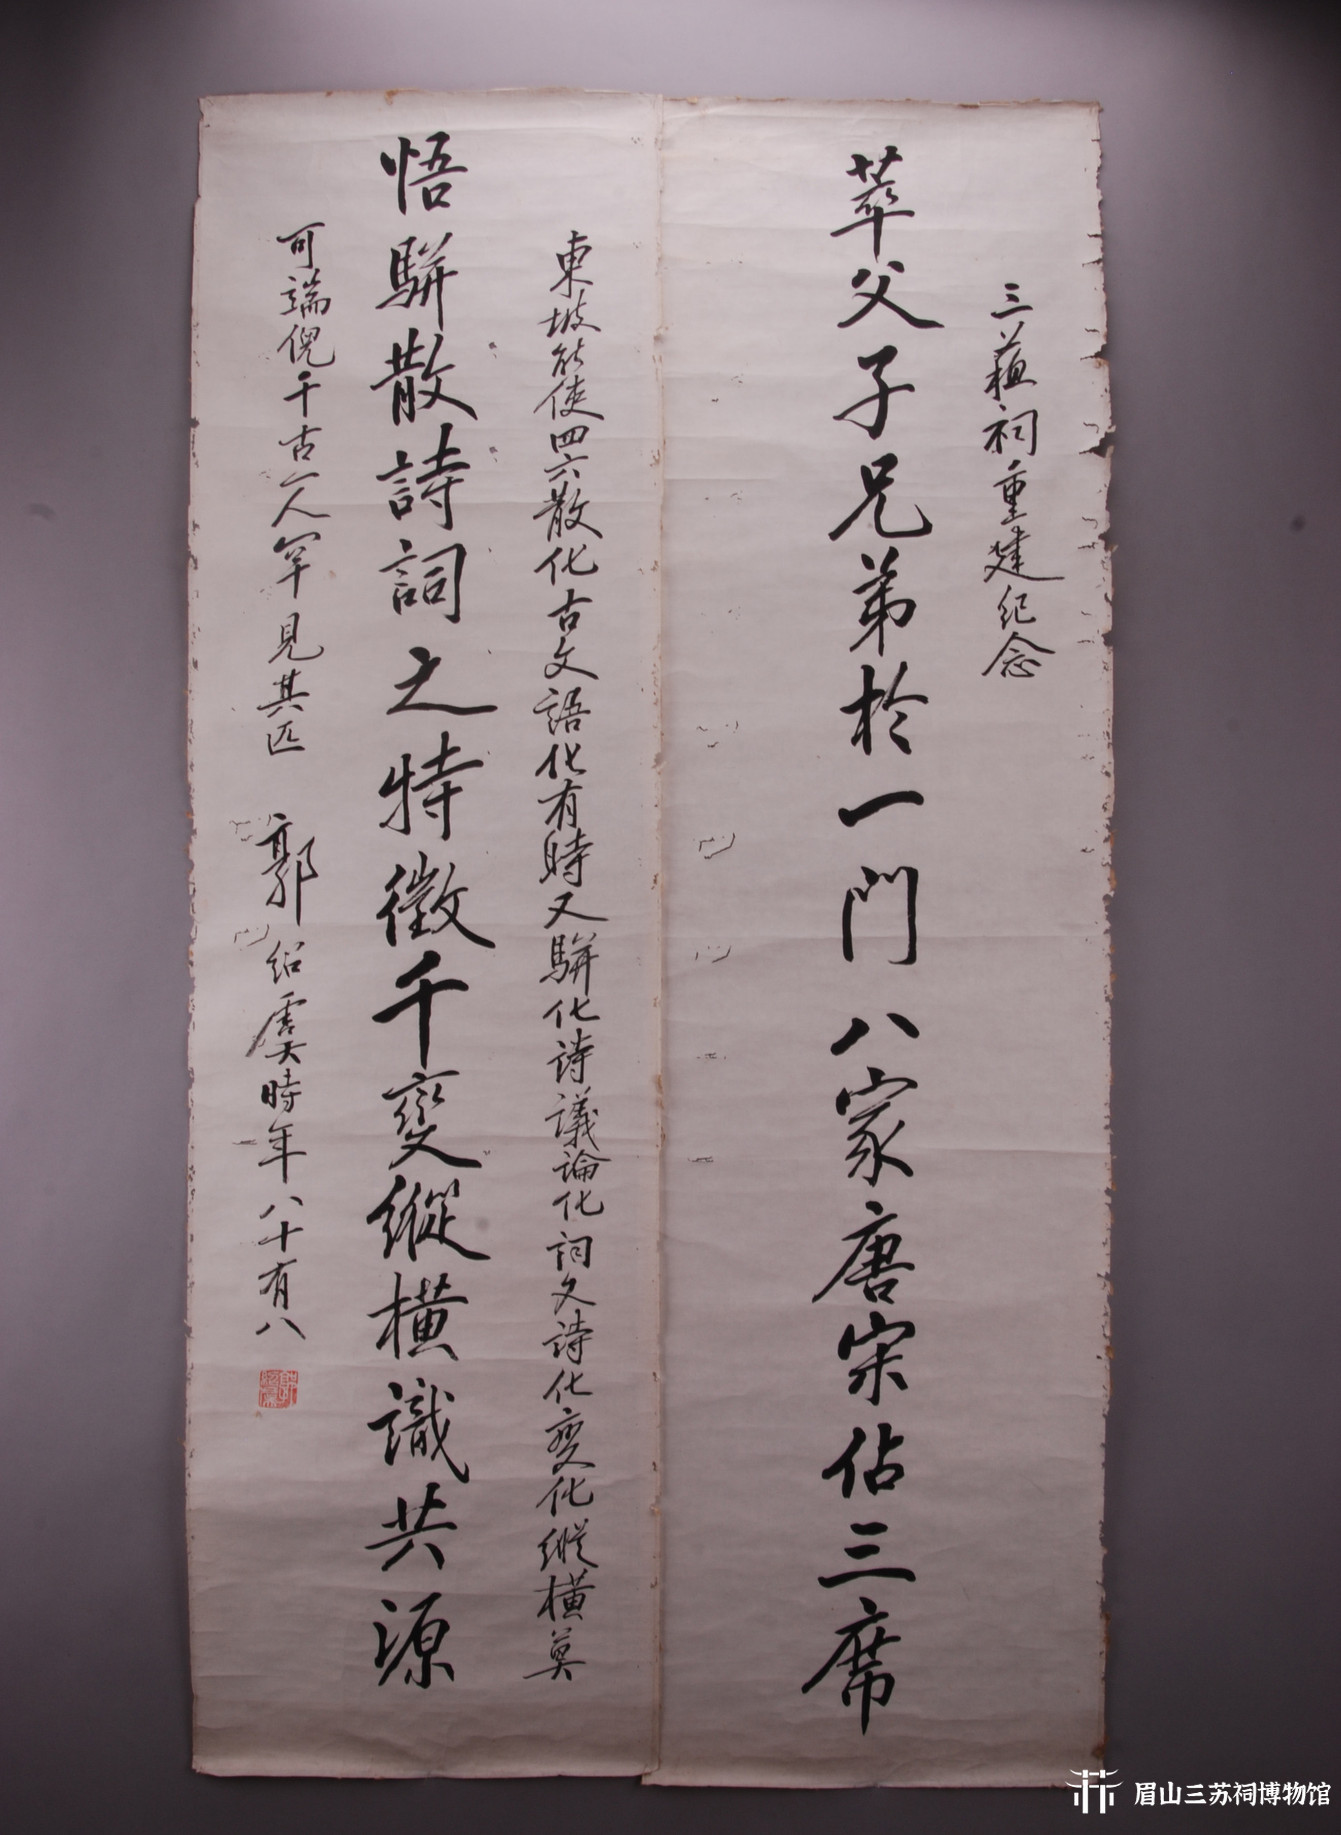 三蘓祠重建纪念
萃父子兄弟於一門八家唐宋佔三席
東坡能使四六散化古文語化有時又駢化詩議論化詞文詩化變化縱橫莫
悟駢散詩詞之特徵千变縱橫識共源
可端倪千古一人罕見其匹 郭绍虞時年八十有八
眉山三苏祠博物馆